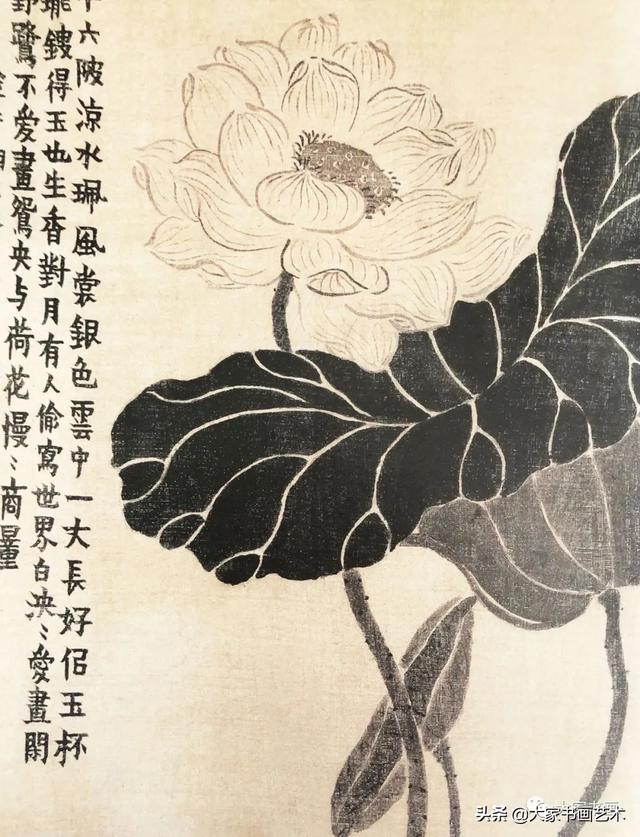 十六陂涼水珮風裳銀色雲中一大長好侣玉杯
瓏鎪得玉也生香對月有人偷寫世界白泱〻愛畫閑
野鷺不愛畫鴛央与荷花慢〻商量
头条 @大家书画艺术